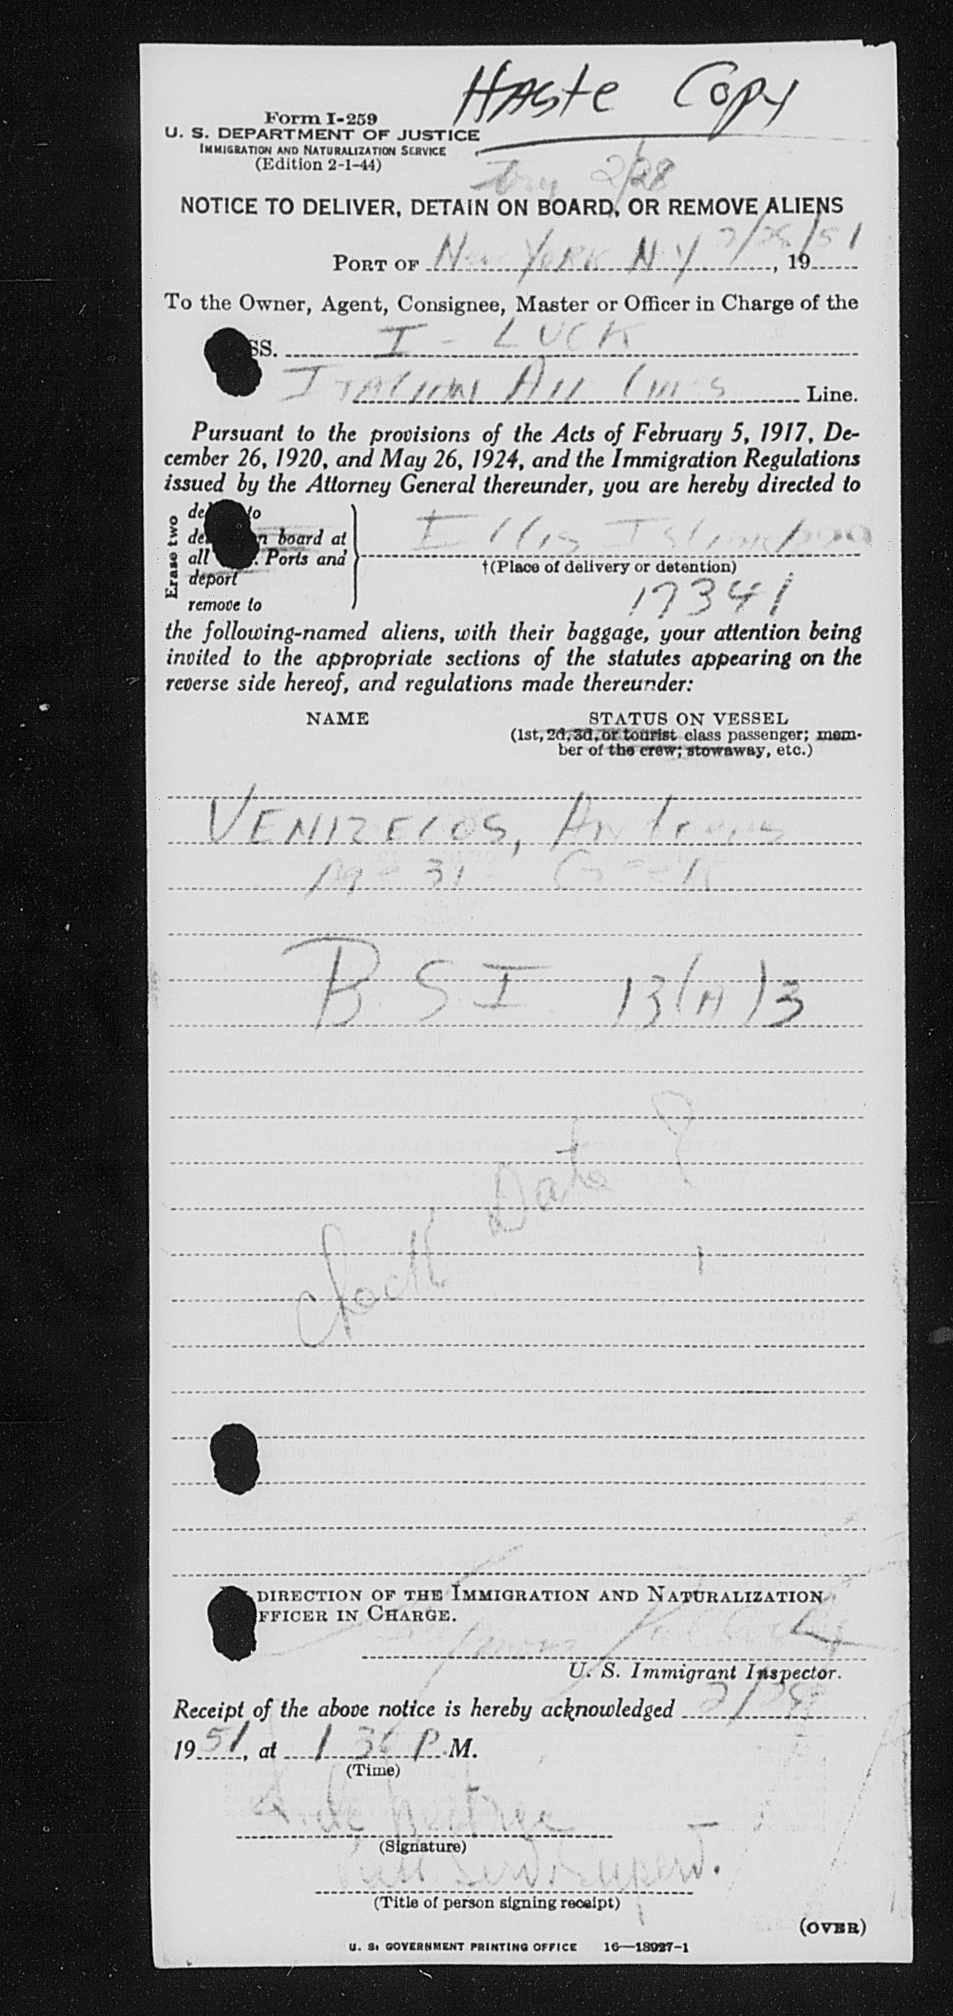 HAste Copy
Form I-259
U. S. DEPARTMENT OF JUSTICE
IMMIGRATION AND NATURALIZATION SERVICE
(Edition 2-1-44)
2/28
NOTICE TO DELIVER, DETAIN ON BOARD, OR REMOVE ALIENS
PORT OF New YORK N Y 2/28/51, 19
To the Owner, Agent, Consignee, Master or Officer in Charge of the
SS. I - LUCK
ITALIAN Air Lines Line.
Pursuant to the provisions of the Acts of February 5, 1917, De-
cember 26, 1920, and May 26, 1924, and the Immigration Regulations
issued by the Attorney General thereunder, you are hereby directed to
Erase two
to
board at
all Ports and
deport
remove to
Ellis Island
†(Place of delivery or detention)
17341
the following-named aliens, with their baggage, your attention being
invited to the appropriate sections of the statutes appearing on the
reverse side hereof, and regulations made thereunder:
NAME STATUS ON VESSEL
(1st, 2d, 3d, or tourist class passenger; mem-
ber of the crew; stowaway, etc.)
VENIZELOS, Andreas
Age 31 Greek
B S I 13(A)3
Date ?
DIRECTION OF THE IMMIGRATION AND NATURALIZATION
FFICER IN CHARGE.
U. S. Immigrant Inspector.
Receipt of the above notice is hereby acknowledged 2/28
1951, at 1 30 P. M.
(Time)
(Signature)
(Title of person signing receipt)
(OVER)
U. S. GOVERNMENT PRINTING OFFICE 16—18927-1